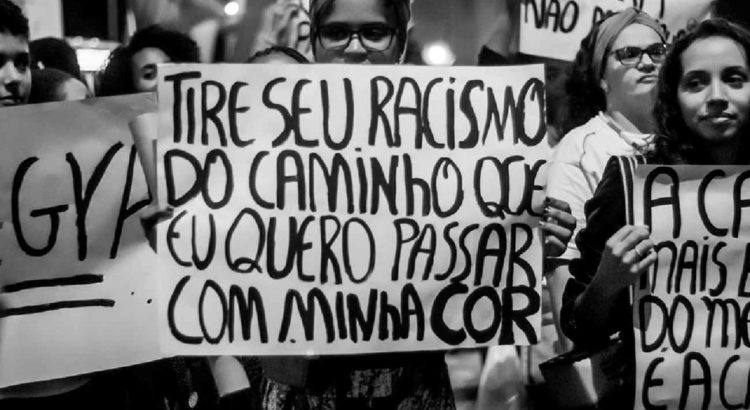 NÃO
GYA
TIRE SEU RACISMO
DO CAMINHO QUE
EU QUERO PASSAR
COM MINHA COR
A CA
MAIS
DO ME
E A CA